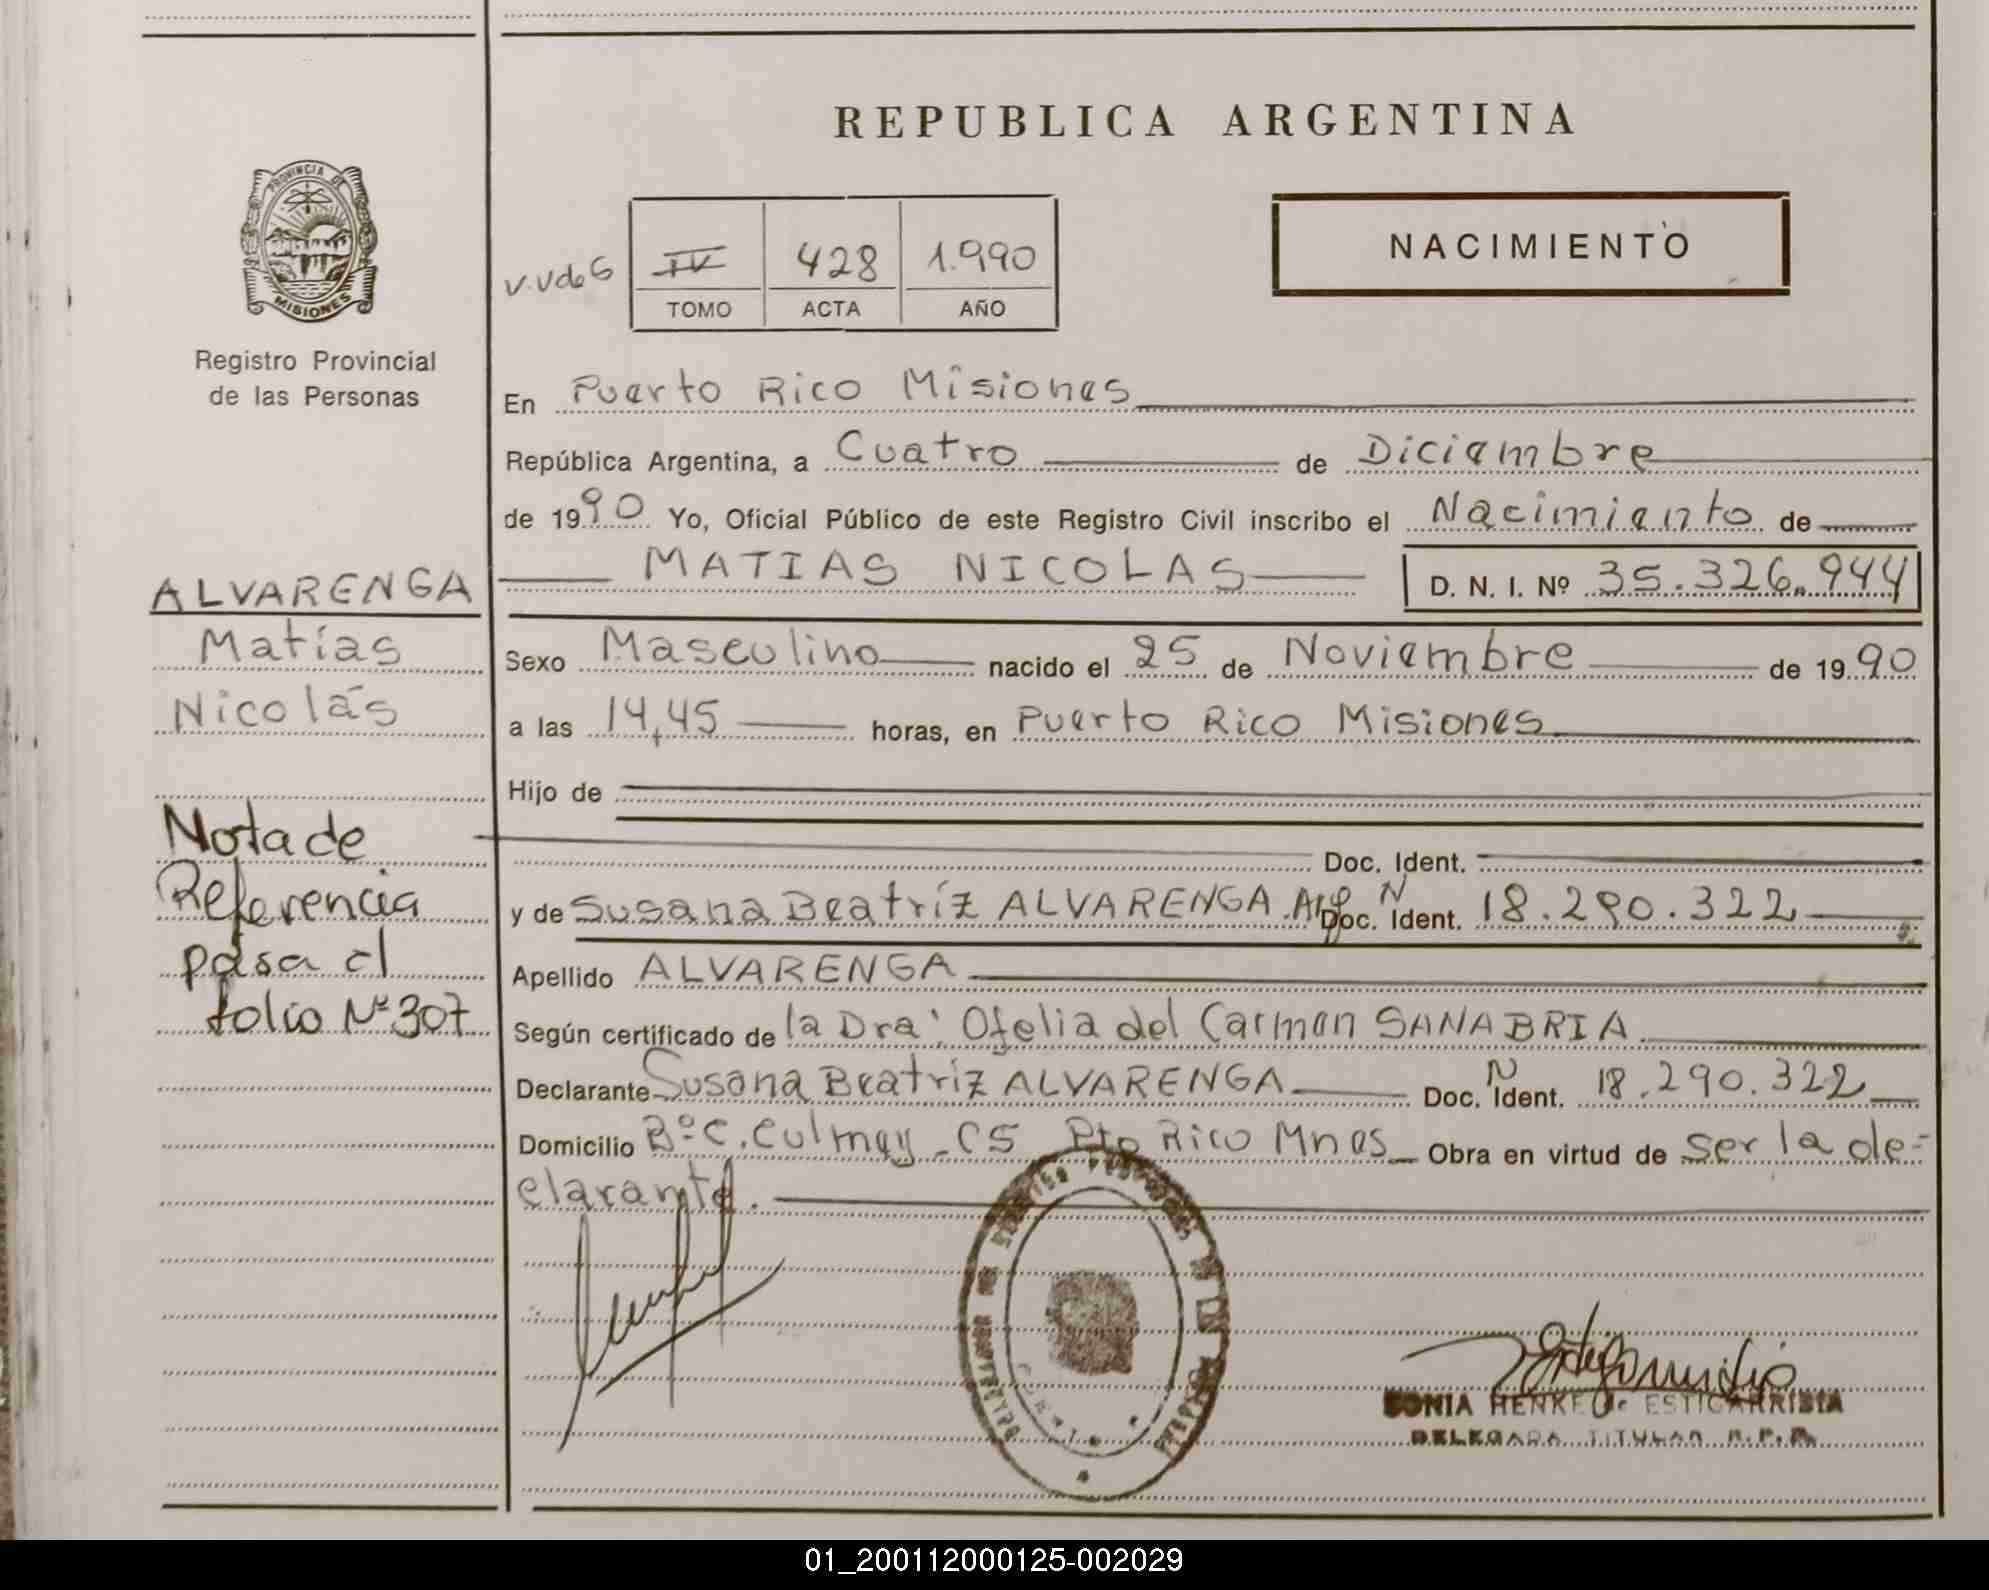 REPUBLICA ARGENTINA
PROVINCIA DE
MISIONES
Registro Provincial
de las Personas
NACIMIENTO
IV 428 1.990
TOMO ACTA AÑO
En Puerto Rico Misiones
República Argentina, a Cuatro de Diciembre
de 1990 Yo, Oficial Público de este Registro Civil inscribo el Nacimiento de
MATIAS NICOLAS D. N. I. Nº 35.326.944
ALVARENGA
Matías
Nicolás
Sexo Masculino nacido el 25 de Noviembre de 1990
a las 14,45 horas, en Puerto Rico Misiones
Hijo de
Doc. Ident.
Nota de
Referencia
pasa al
folio Nº 307
y de Susana Beatríz ALVARENGA Arg N Doc. Ident. 18.290.322
Apellido ALVARENGA
Según certificado de la Dra. Ofelia del Carmen SANABRIA
Declarante Susana Beatríz ALVARENGA N Doc. Ident. 18.290.322
Domicilio Bº C. Culmey CS Pto Rico Mnes Obra en virtud de ser la de-
clarante.
SONIA HENKE de ESTIGARRIBIA
DELEGADA TITULAR R.P.P.
01_200112000125-002029